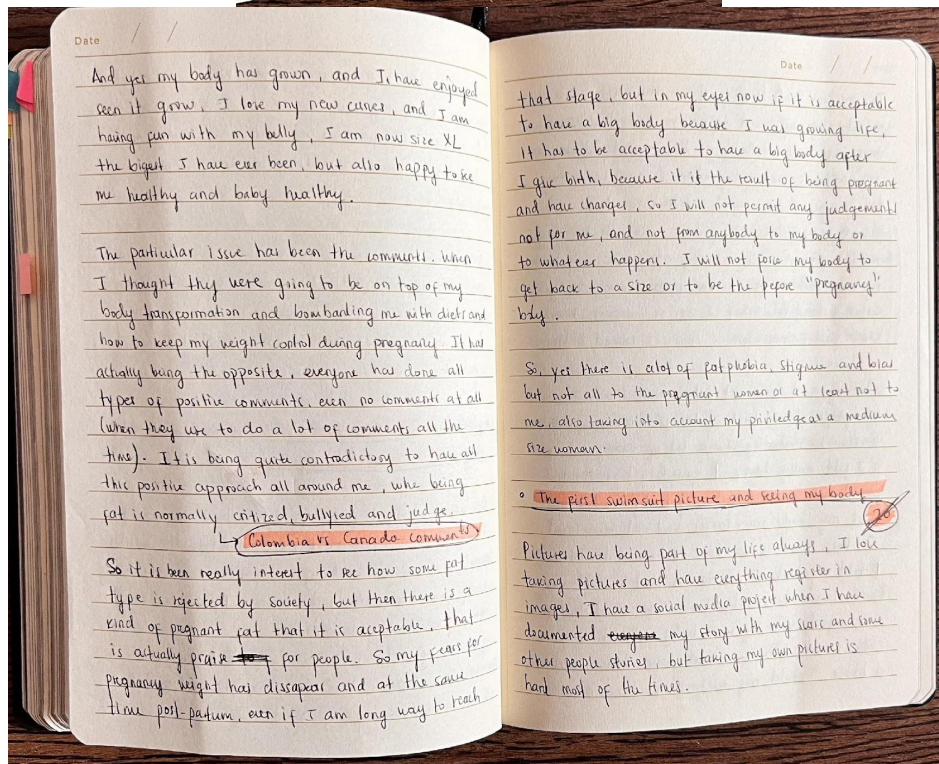 Date / /
And yes my body has grown, and I, have enjoyed
seen it grow, I love my new curves, and I am
having fun with my belly, I am now size XL
the bigest I have ever been, but also happy to see
me healthy and baby healthy.
The particular issue has been the comments. When
I thought they were going to be on top of my
body transformation and bombarding me with diets and
how to keep my weight control during pregnancy It has
actually being the opposite, everyone has done all
types of positive comments, even no comments at all
(when they use to do a lot of comments all the
time). It is being quite contradictory to have all
this positive approach all around me, whe being
fat is normally critized, bullyied and judge.
Colombia vs Canada comments
So it is been really interest to see how some fat
type is rejected by society, but then there is a
kind of pregnant fat that it is aceptable, that
is actually praise for people. So my fears for
pregnancy weight has dissapear and at the same
time post-partum, even if I am long way to reach
Date / /
that stage, but in my eyes now if it is acceptable
to have a big body because I was growing life,
it has to be acceptable to have a big body after
I give birth, because it is the result of being pregnant
and have changes, so I will not permit any judgements
not for me, and not from anybody to my body or
to whatever happens. I will not force my body to
get back to a size or to be the before "pregnancy"
body.
So, yes there is alot of fatphobia, stigma and bias
but not all to the pregnant women or at least not to
me, also taking into account my priviledge as a medium
size woman.
• The first swimsuit picture and seeing my body
20
Pictures have being part of my life always, I love
taking pictures and have everything register in
images, I have a social media project when I have
documented my story with my scars and some
other people stories, but taking my own pictures is
hard most of the times.